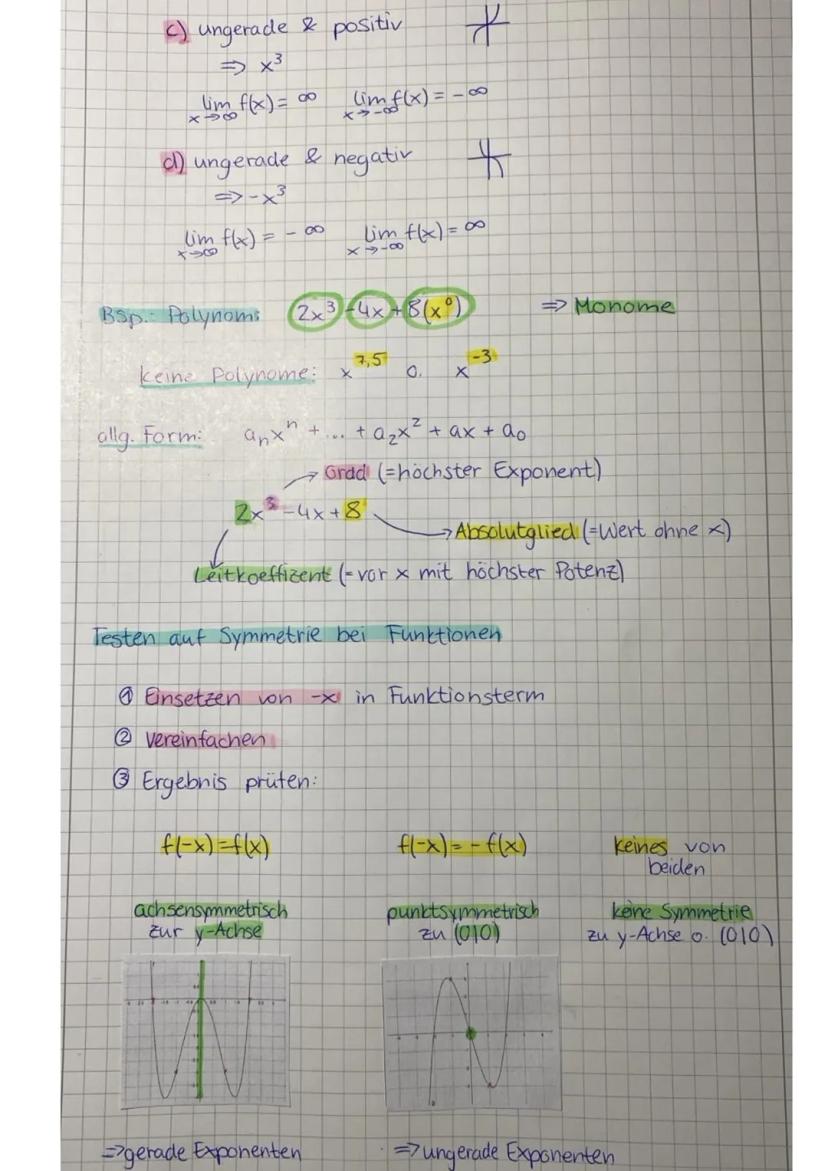 c) ungerade & positiv
⇒ x³
lim f(x) = ∞ lim f(x) = -∞
x→∞ x→-∞
d) ungerade & negativ
⇒ -x³
lim f(x) = -∞ lim f(x) = ∞
x→∞ x→-∞
Bsp.: Polynom: 2x³ -4x + 8(x⁰) ⇒ Monome
keine Polynome: x^7,5 o. x^-3
allg. Form: aₙxⁿ + ... + a₂x² + ax + a₀
Grad (=höchster Exponent)
2x³ -4x + 8
Absolutglied (=Wert ohne x)
Leitkoeffizent (=vor x mit höchster Potenz)
Testen auf Symmetrie bei Funktionen
① Einsetzen von -x in Funktionsterm
② vereinfachen
③ Ergebnis prüfen:
f(-x)=f(x) f(-x)= - f(x) keines von
beiden
achsensymmetrisch punktsymmetrisch keine Symmetrie
zur y-Achse zu (0|0) zu y-Achse o. (0|0)
⇒gerade Exponenten ⇒ungerade Exponenten